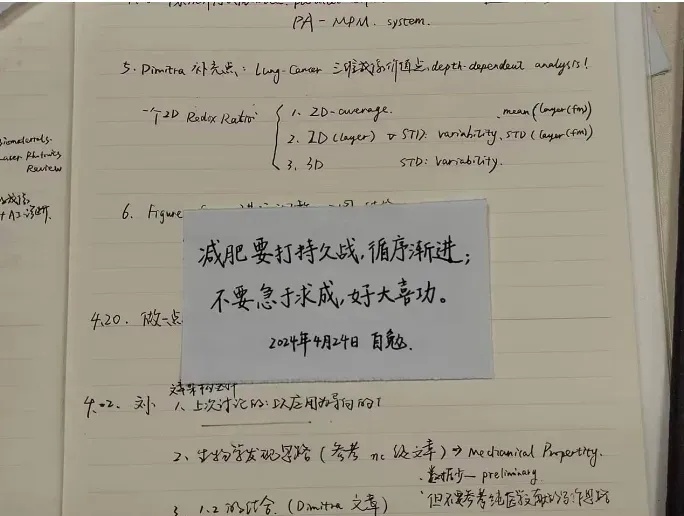 PA-MPM. system.
5. Dimitra 补充点: Lung-Cancer 三维成像价值点, depth-dependent analysis!
一个2D Redox Ratio:
1. 2D-average. mean(layer(fm))
2. 2D(layer) STD: variability. STD(layer(fm))
3. 3D STD: variability.
Biomaterials.
Laser Photonics
Review
6. Figure
减肥要打持久战,循序渐进;
不要急于求成,好大喜功。
2024年4月24日 自勉.
4.20. 做一点
文章架构
刘 1、上次讨论的: 以应用为导向的
2、生物学发现思路 (参考 nc 经文章) → Mechanical Propertity.
数据少 — preliminary
3 1.2 的结合. (Dimitra 文章)